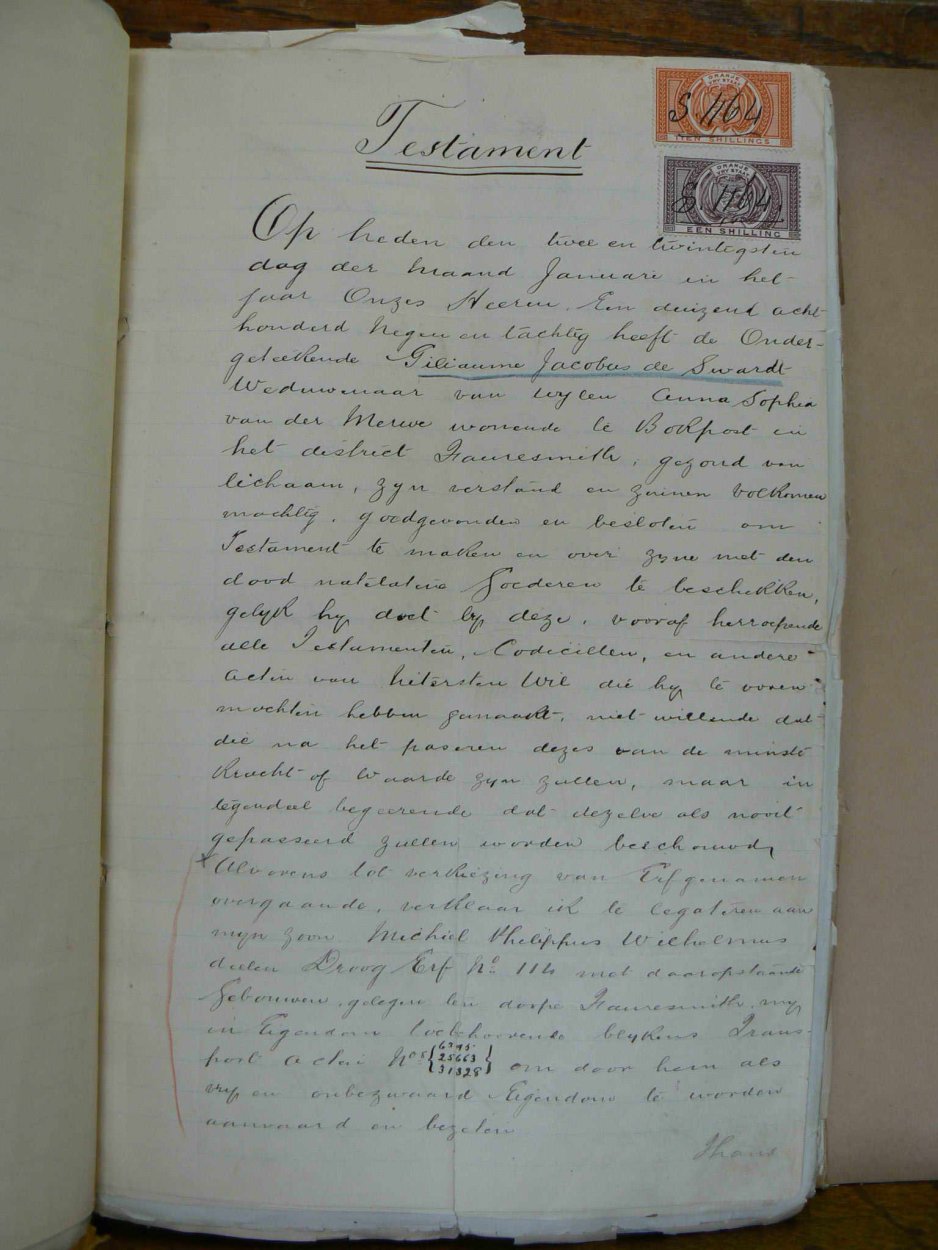 Testament
ORANJE
VRY STAAT
S 1164
TIEN SHILLINGS
ORANJE
VRY STAAT
S. 1164.
EEN SHILLING
Op heden den twee en twintigsten
dag der maand Januari in het
jaar Onzes Heeren Een duizend acht-
honderd Negen en tachtig heeft de Onder-
geteekende Giliaume Jacobus de Swardt
Weduwenaar van wylen Anna Sophia
van der Merwe wonende te Bokpost in
het district Fauresmith, gezond van
lichaam, zyn verstand en zinnen volkomen
machtig, goedgevonden en besloten om
Testament te maken en over zyne met den
dood natelatene Goederen te beschikken,
gelyk hy doet by deze, vooraf herroepende
alle Testamenten, Codicillen, en andere
Acten van Uitersten Wil die hy te voren
mochten hebben gemaakt, niet willende dat
die na het paseren dezes van de minste
Kracht of Waarde zyn zullen, maar in
tegendeel begeerende dat dezelve als nooit
gepasseerd zullen worden beschouwd,
x Alvorens tot verkiezing van Erfgenamen
overgaande, verklaar ik te legateren aan
myn zoon Michiel Philippus Wilhelmus
deelen Droog Erf No 114 met daaropstaande
Gebouwen, gelegen ten dorpe Fauresmith, my
in Eigendom toebehoorende blykens Trans-
port Acten Nos { 6295
25663
31328 } om door hem als
vry en onbezwaard Eigendom te worden
aanvaard en bezeten
Thans